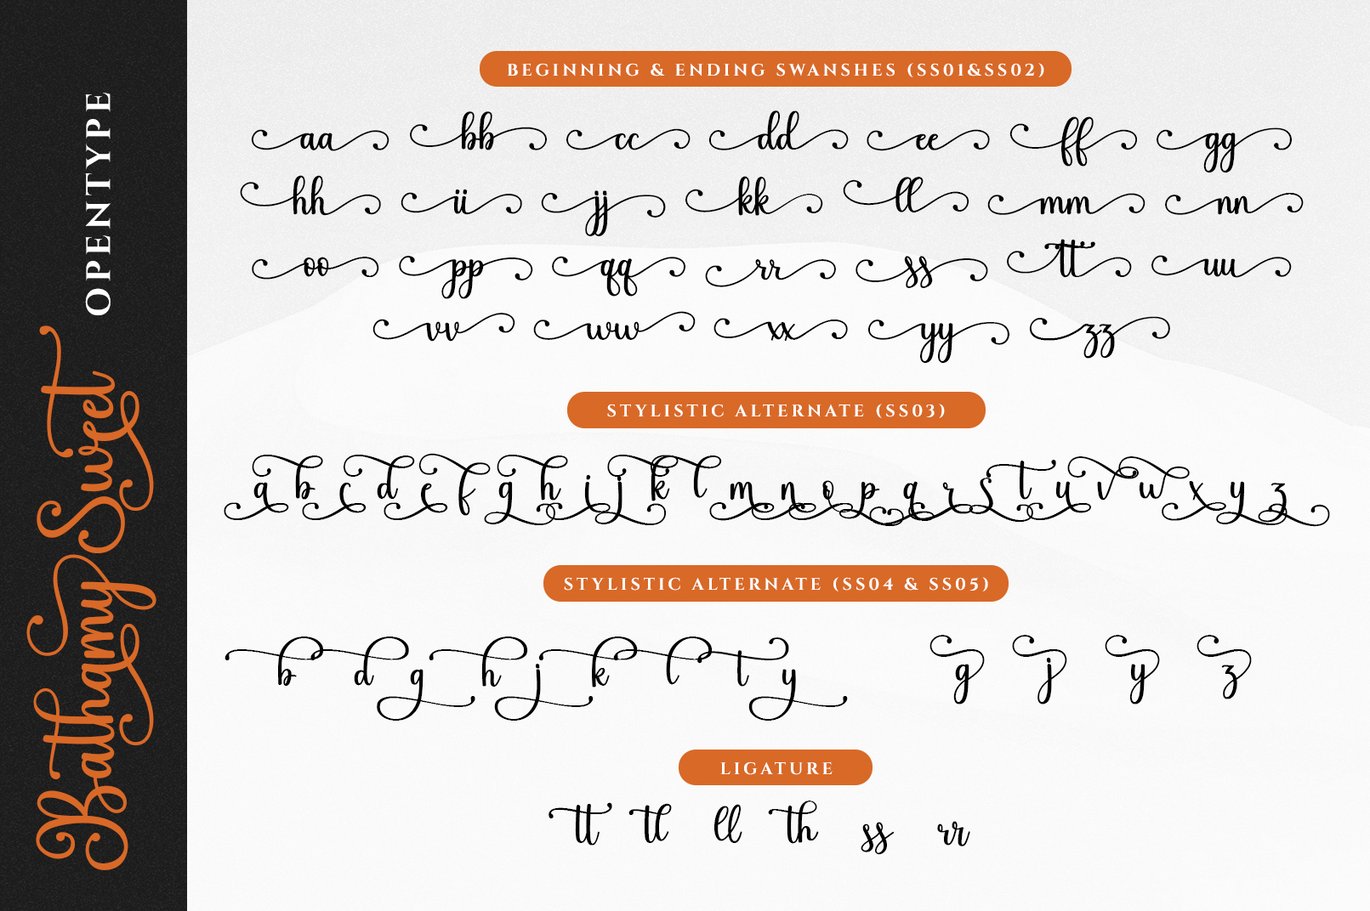 OPENTYPE
Bathamy Sweet
BEGINNING & ENDING SWANSHES (SS01&SS02)
aa bb cc dd ee ff gg
hh ii jj kk ll mm nn
oo pp qq rr ss tt uu
vv ww xx yy zz
STYLISTIC ALTERNATE (SS03)
a b c d e f g h i j k l m n o p q r s t u v w x y z
STYLISTIC ALTERNATE (SS04 & SS05)
b d g h j k l t y g j y z
LIGATURE
tt tl ll th ss rr